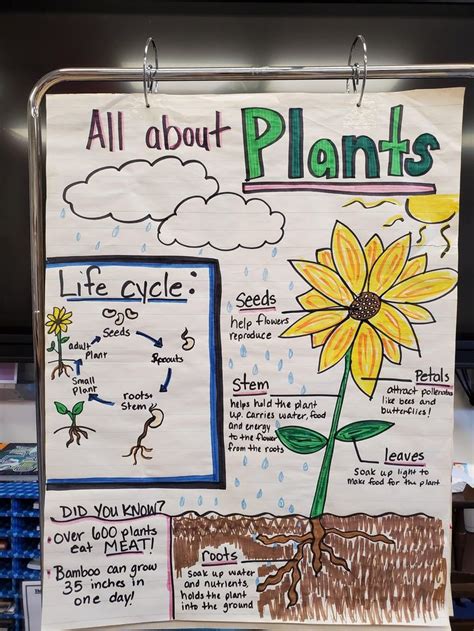 All about Plants
Life cycle:
Seeds
Sprouts
roots+
Stem
Small
Plant
adult
Plant
Seeds
help flowers
reproduce
Stem
helps hold the plant
up. carries water, food
and energy
to the flower
from the roots
Petals
attract pollenators
like bees and
butterflies!
leaves
soak up light to
make food for the plant
roots
soak up water
and nutrients,
holds the plant
into the ground
DID YOU KNOW?
• Over 600 plants
eat MEAT!
• Bamboo can grow
35 inches in
one day!